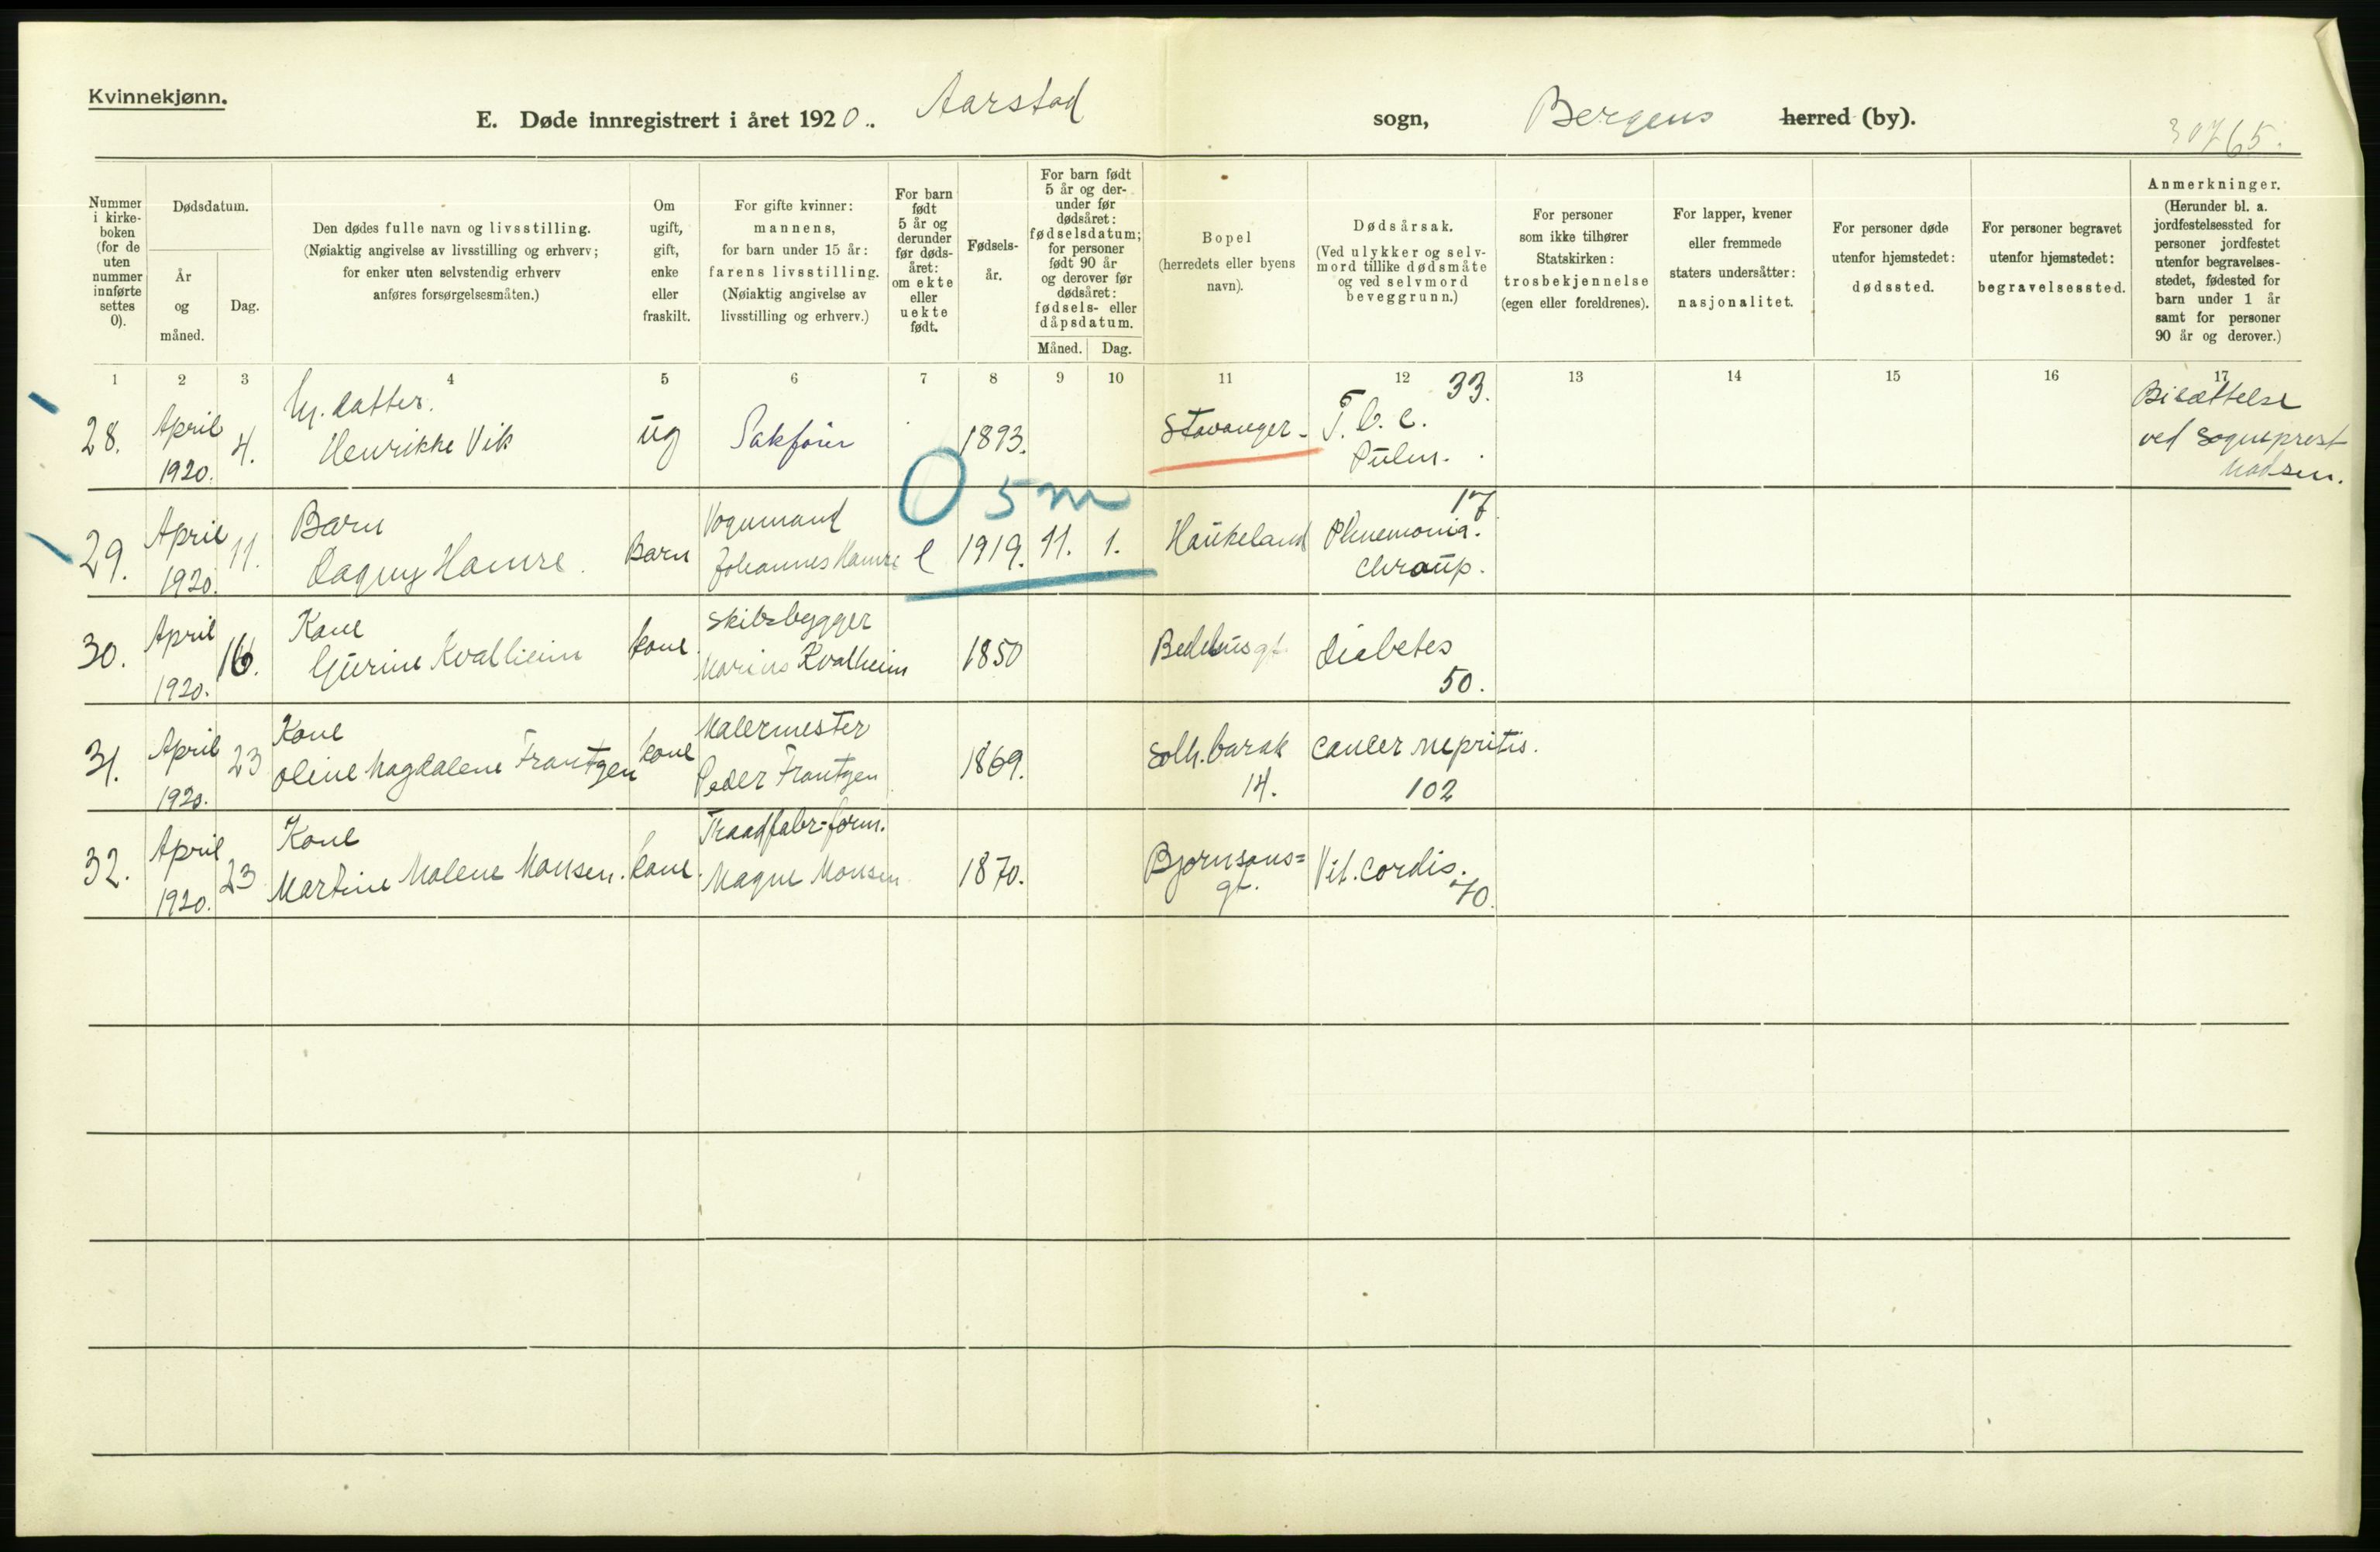 Kvinnekjønn.
E. Døde innregistrert i året 1920. Aarstad sogn, Bergens herred (by).
30765.
Nummer i kirke-boken (for de uten nummer innførte settes 0).
Dødsdatum.
År og måned.
Dag.
Den dødes fulle navn og livsstilling.
(Nøiaktig angivelse av livsstilling og erhverv;
for enker uten selvstendig erhverv
anføres forsørgelsesmåten.)
Om
ugift,
gift,
enke
eller
fraskilt.
For gifte kvinner:
mannens,
for barn under 15 år:
farens livsstilling.
(Nøiaktig angivelse av
livsstilling og erhverv.)
For barn
født
5 år og
derunder
før døds-
året:
om ekte
eller
uekte
født.
Fødsels-
år.
For barn født
5 år og der-
under før
dødsåret:
fødselsdatum;
for personer
født 90 år
og derover før
dødsåret:
fødsels- eller
dåpsdatum.
Måned. Dag.
Bopel
(herredets eller byens
navn).
Dødsårsak.
(Ved ulykker og selv-
mord tillike dødsmåte
og ved selvmord
beveggrunn.)
For personer
som ikke tilhører
Statskirken:
trosbekjennelse
(egen eller foreldrenes).
For lapper, kvener
eller fremmede
staters undersåtter:
nasjonalitet.
For personer døde
utenfor hjemstedet:
dødssted.
For personer begravet
utenfor hjemstedet:
begravelsessted.
Anmerkninger.
(Herunder bl. a.
jordfestelsessted for
personer jordfestet
utenfor begravelses-
stedet, fødested for
barn under 1 år
samt for personer
90 år og derover.)
1 2 3 4 5 6 7 8 9 10 11 12 13 14 15 16 17
28. April 1920. 4. datter. Henrikke Vik ug Sakfører 1893. Stavanger- T.b.c. Pulm. 33. Bisættelse ved sogneprest Madsen.
0 5 m
29. April 1920. 11. Barn Dagny Hamre. Barn Vognmand Johannes Hamre e 1919. 11. 1. Haukeland Phnemonia. chroup. 17
30. April 1920. 16. Kone Gurine Kvalheim kone Skibsbygger Marius Kvalheim 1850 Bedehusgt. Diabetes 50.
31. April 1920. 23 Kone Oline Magdalene Frantzen kone Malermester Peder Frantzen 1869. Solh. barak 14. Cancer nepritis. 102
32. April 1920. 23 Kone Martine Malene Monsen. kone. Traadfabr-form. Magne Monsen 1870. Bjørnsons=gt. Vit. cordis. 70.